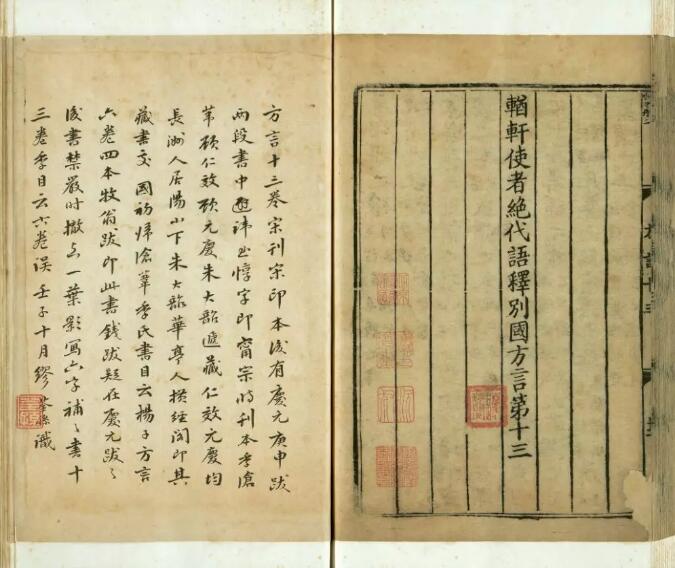 輶軒使者絕代語釋別國方言第十三
方言十三卷宋刊宋印本後有慶元庚申跋
兩段書中避諱至惇字即甯宗時刊本季滄
葦顧仁效顧元慶朱大韶遞藏仁效元慶均
長洲人居陽山下朱大韶華亭人橫經閣即其
藏書處 國初歸滄葦季氏書目云楊子方言
六卷四本牧翁跋即此書錢跋疑在慶元跋之
後書禁嚴時撤去一葉影寫六字補之書十
三卷季目云六卷誤壬子十月繆荃孫識